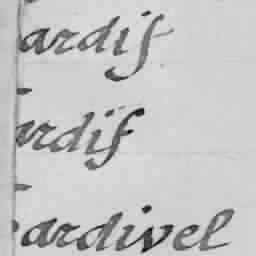 ardif
ardif
ardivel